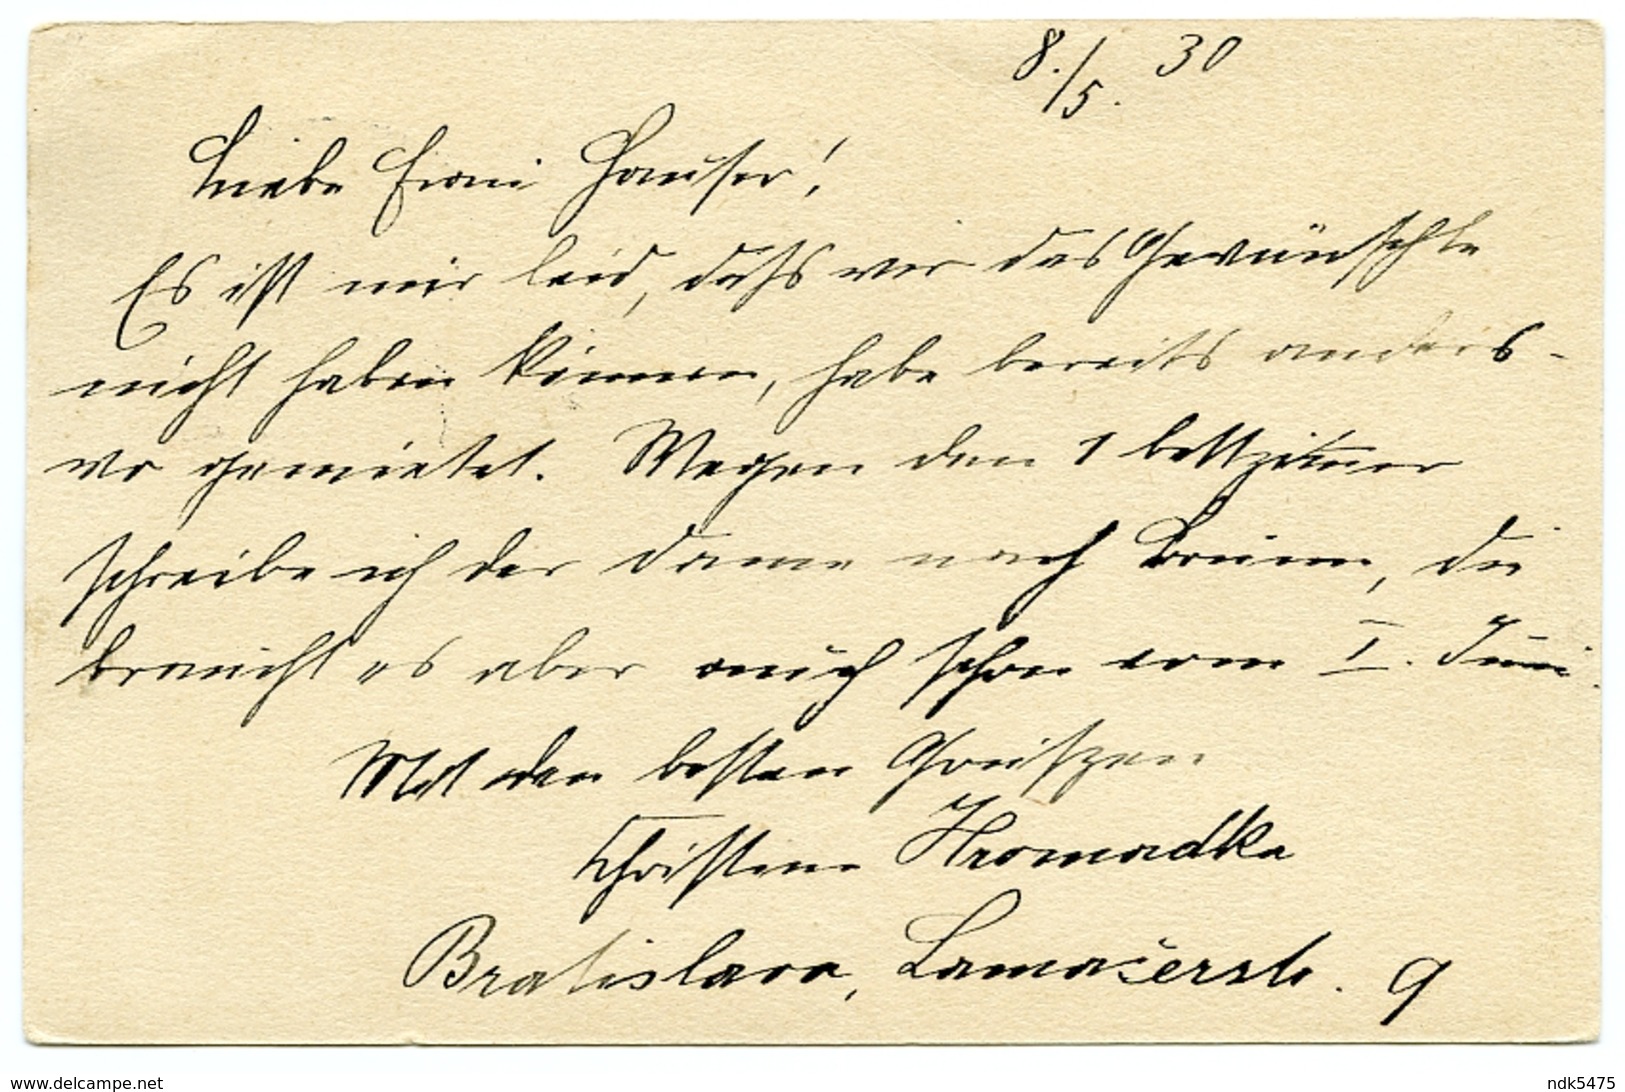 8./5. 30
Liebe Fräul. Hauser!
Es ist mir leid, daß wir das Gewünschte
nicht haben können, habe bereits anders-
wo gemietet. Wegen den 1 bettzimmer
schreibe ich der Dame nach Brünn, die
braucht es aber auch schon vom I. Juni.
Mit den besten Grüßen
Christine Hromadka
Bratislava, Lamačerstr. 9
www.delcampe.net
ndk5475